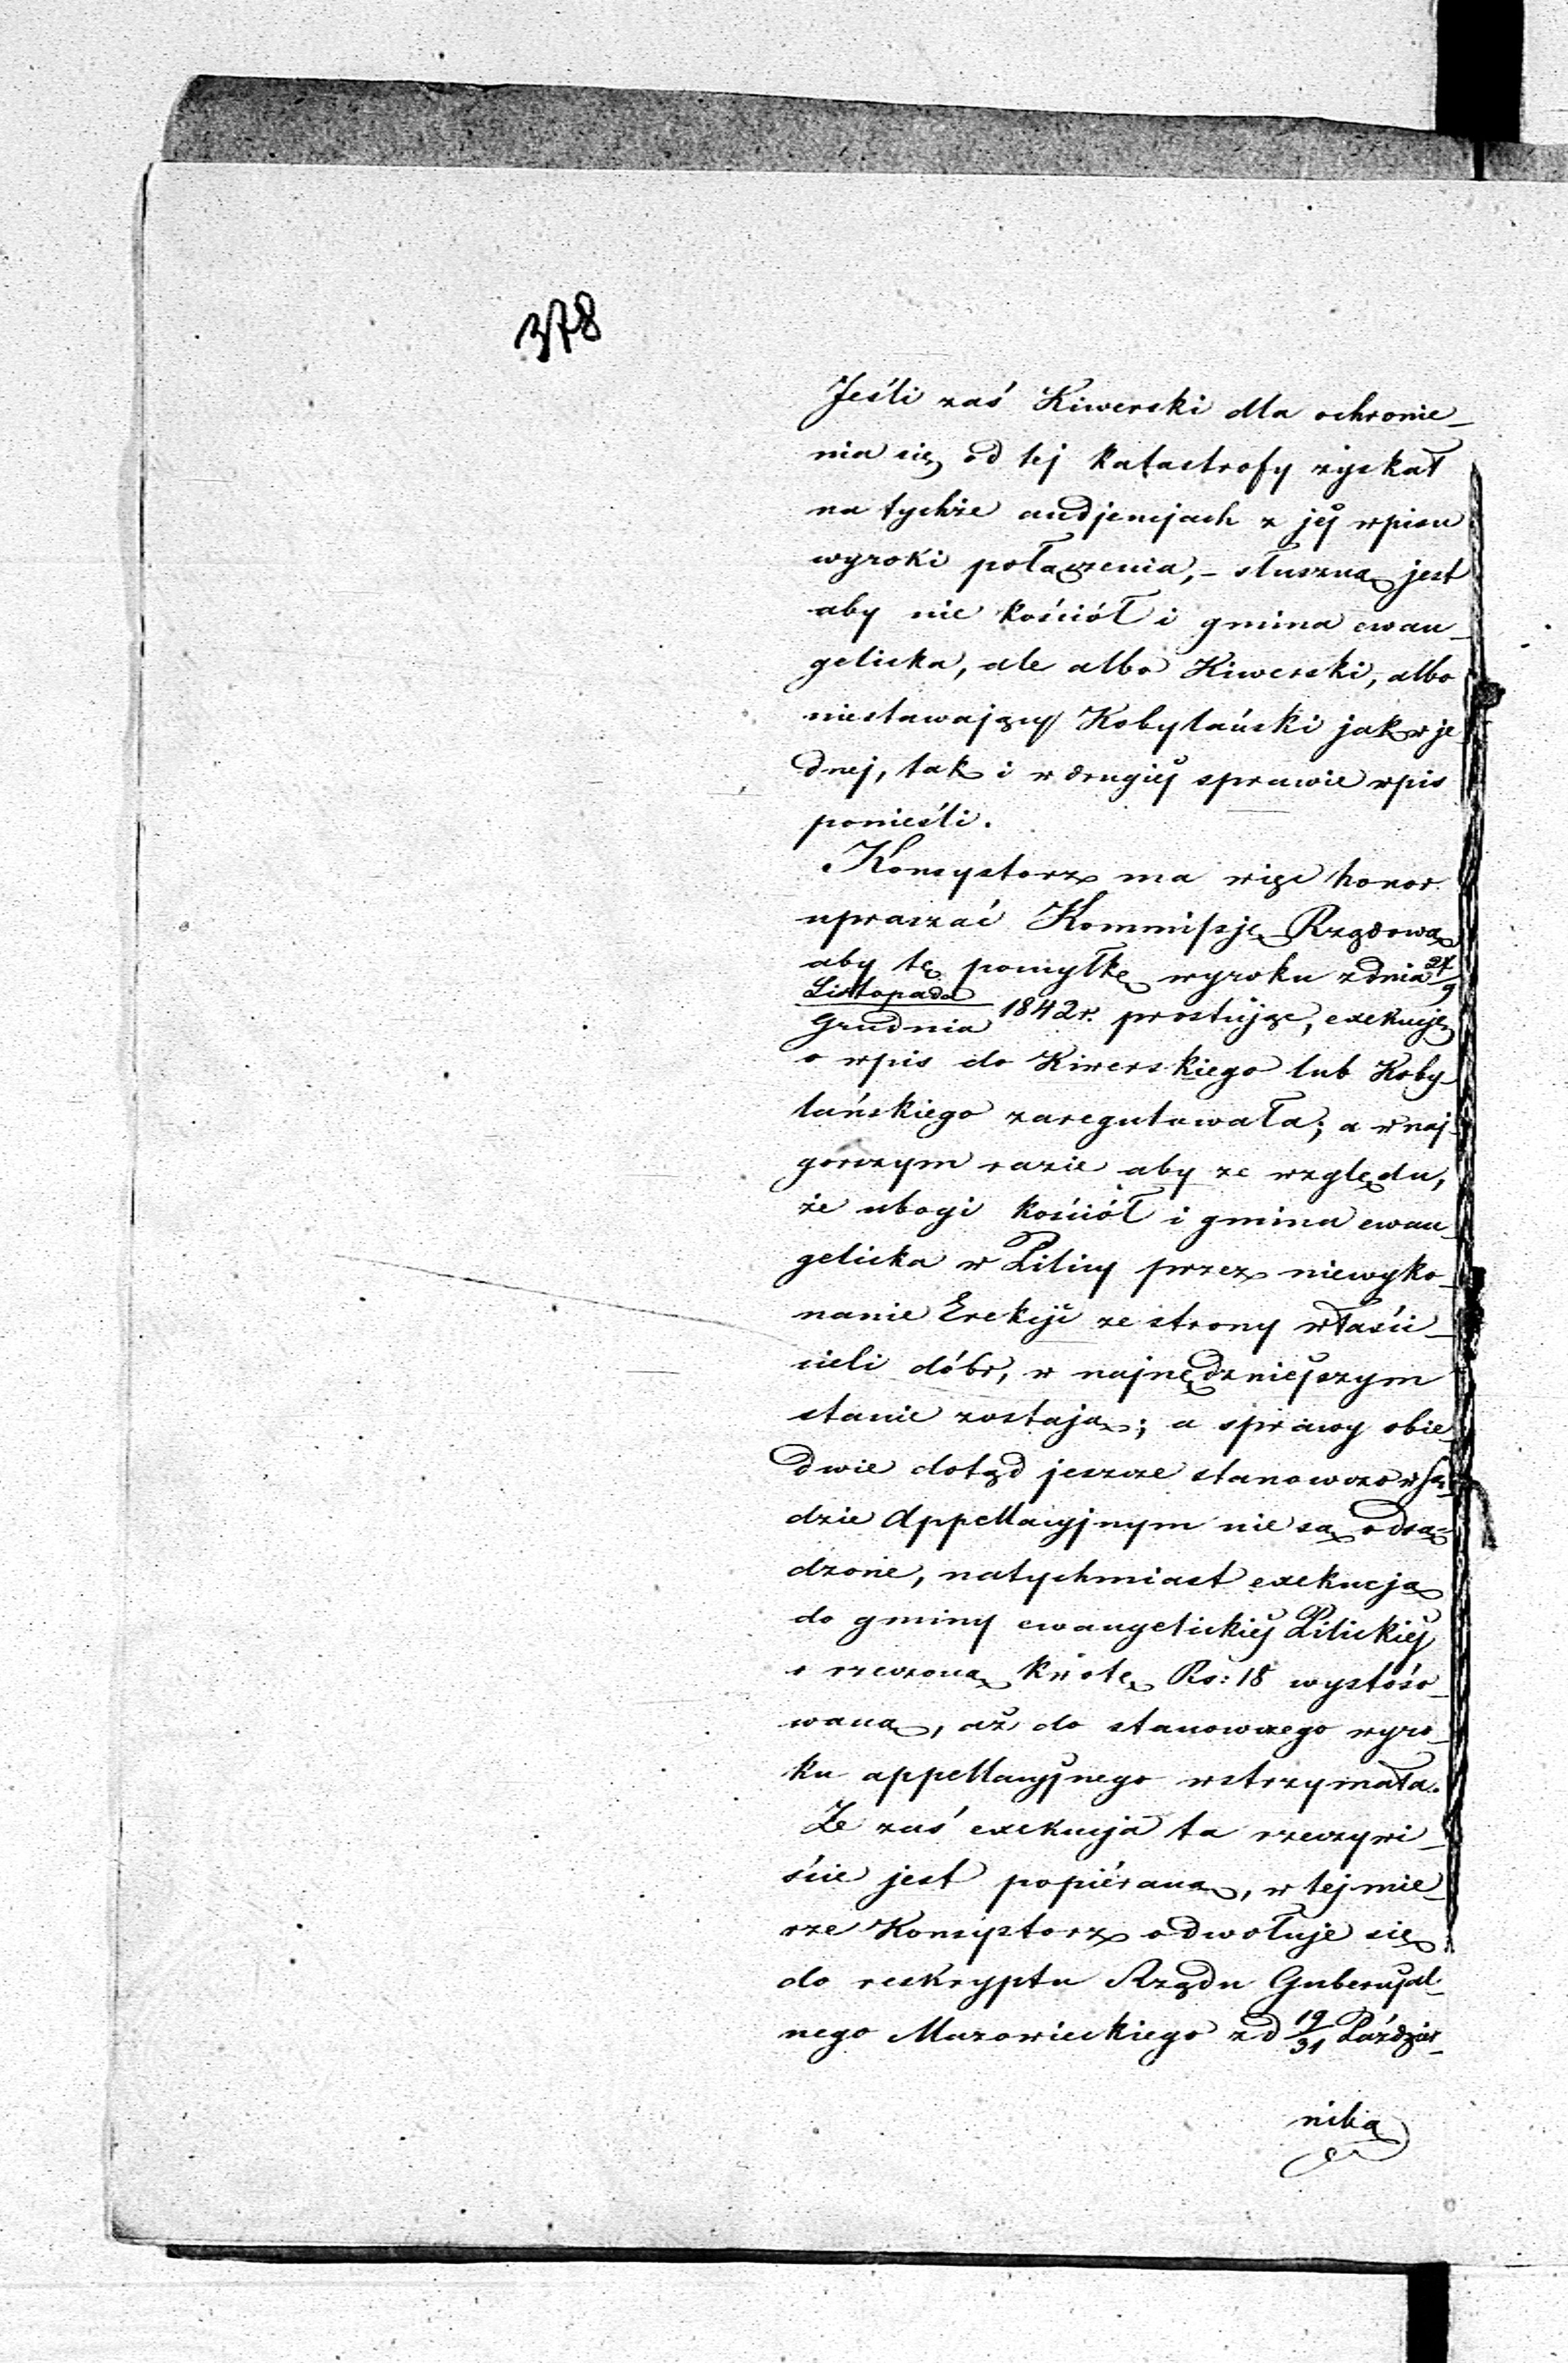 378
Jeśli zaś Kiwerski dla ochronie_
nia się od tej katastrofy zyskał
na tychże audjencjach z jéj wpisu
wyroki połączenia, – słuszną jest
aby nie kościół i gmina ewan_
gelicka, ale albo Kiwerski, albo
niestawający Kobylański jak w je_
dnej, tak i w drugiéj sprawie wpis
ponieśli.
Konsystorz ma więc honor
upraszać Kommissję Rządową
aby tę pomyłkę wyroku z dnia 27/9
Listopada/Grudnia 1842 r. prostując, exekucję
o wpis do Kiwerskiego lub Koby_
lańskiego zaregulowała; a w naj_
gorszym razie aby ze względu,
że ubogi kościół i gmina ewan_
gelicka w Pilicy przez niewyko_
nanie Erekcji ze strony właści_
cieli dóbr, w najnędzniejszym
stanie zostają; a sprawy obie_
dwie dotąd jeszcze stanowczo w Są_
dzie Appellacyjnym nie są odsą=
dzone, natychmiast exekucją
do gminy ewangelickiéj Pilickiéj
o rzeczoną kwotę Rs: 18 wystóso_
waną, aż do stanowczego wyro_
ku appellacyjnego wstrzymała.
Że zaś exekucja ta rzeczywi_
ście jest popiéraną, w tej mie_
rze Konsystorz odwołuje się
do reskryptu Rządu Gubernjal_
nego Mazowieckiego z d 19/31 Paździer_
nika